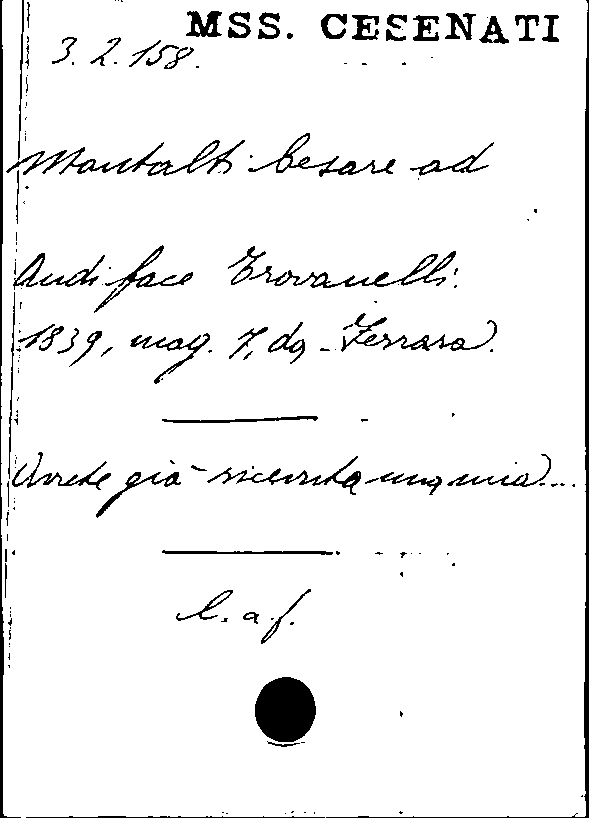 MSS. CESENATI
3.2.158.
Montalti Cesare ad
Audiface Trovanelli.
1839, mag. 7, da Ferrara.
Avrete già ricevuta una mia...
l. a. f.